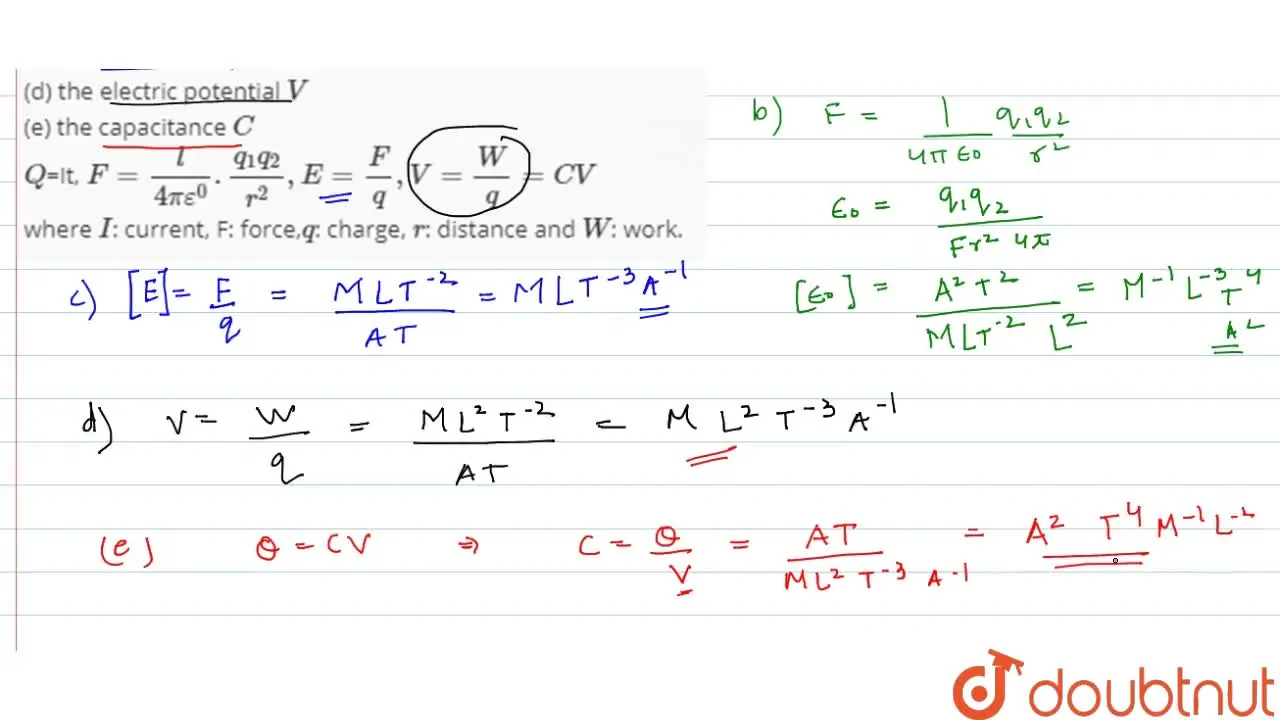 (d) the electric potential V
(e) the capacitance C
Q=It, F = l/4πε⁰ . q₁q₂/r², E = F/q, V = W/q = CV
where I: current, F: force,q: charge, r: distance and W: work.
b) F = 1/4π ε₀ q₁q₂/r²
ε₀ = q₁q₂/Fr² 4π
c) [E] = F/q = MLT⁻²/AT = MLT⁻³A⁻¹
[ε₀] = A²T²/MLT⁻² L² = M⁻¹ L⁻³ T⁴ A²
d) V = W/q = ML²T⁻²/AT = M L² T⁻³ A⁻¹
(e) Q = CV ⇒ C = Q/V = AT/ML² T⁻³ A⁻¹ = A² T⁴ M⁻¹ L⁻²
doubtnut